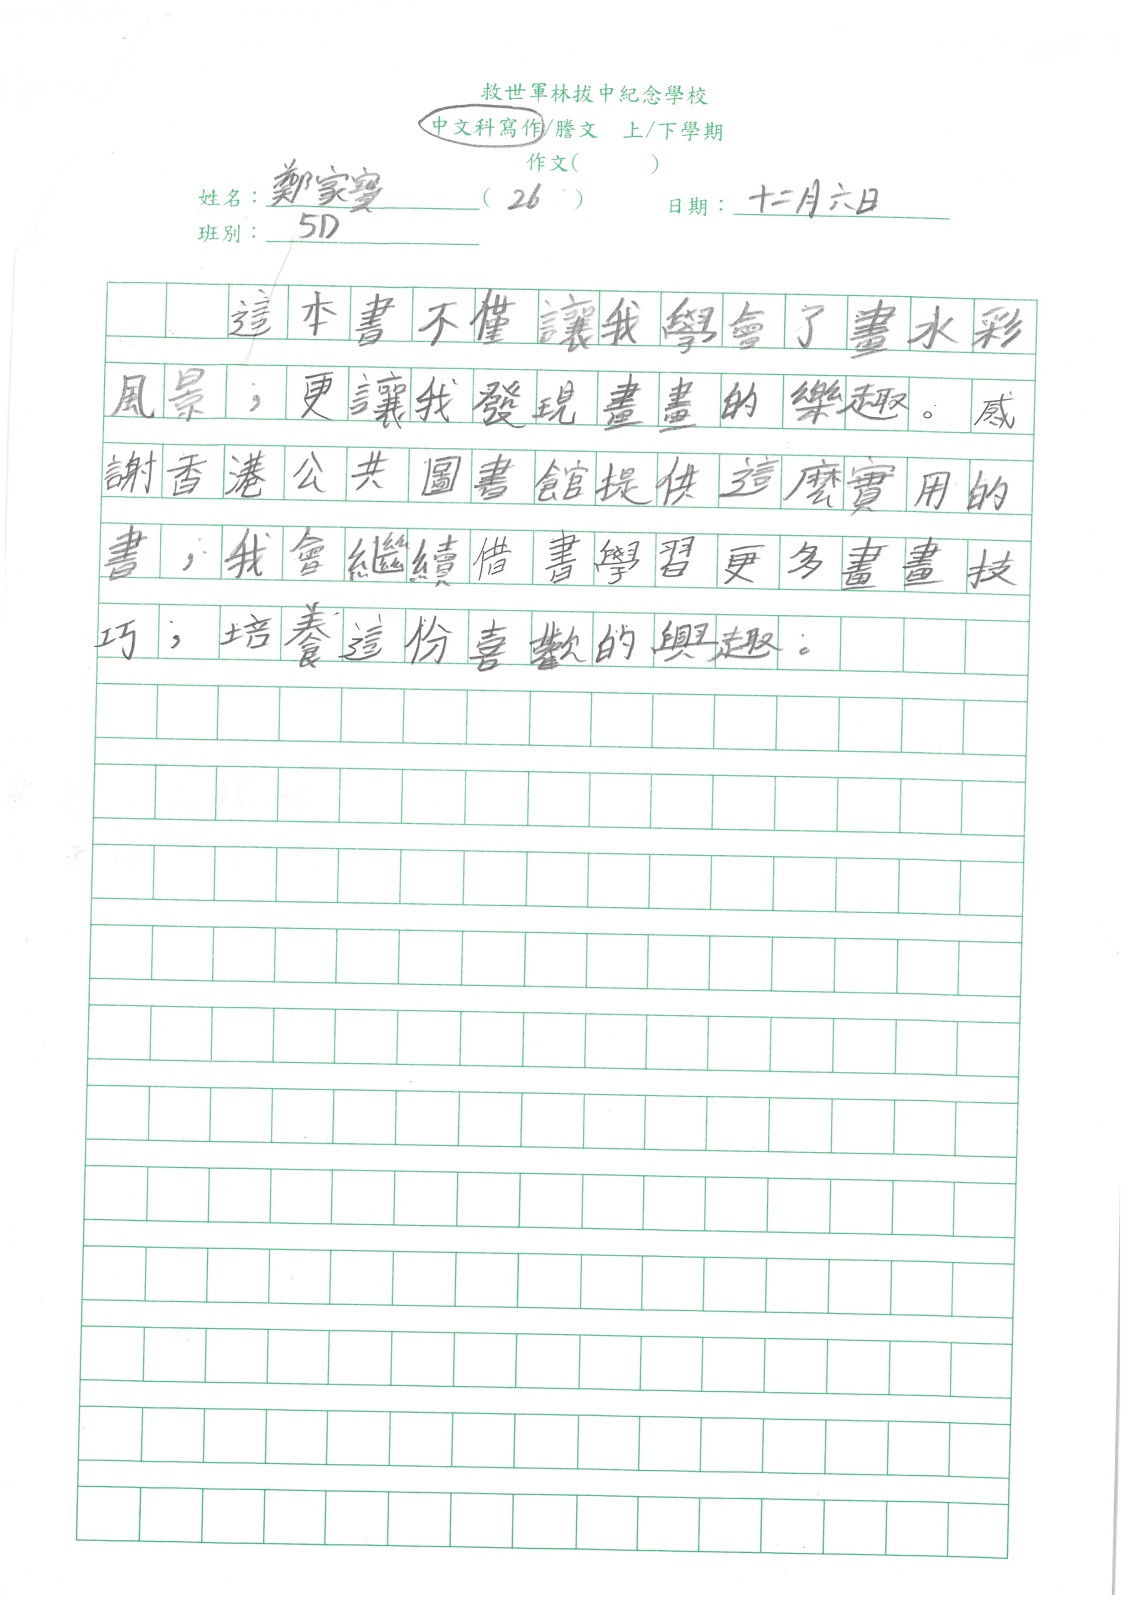 救世軍林拔中紀念學校
中文科寫作/謄文　上/下學期
作文(　　　)
姓名：鄭家寶(26)　日期：十二月六日
班別：5D
這本書不僅讓我學會了畫水彩
風景；更讓我發現畫畫的樂趣。感
謝香港公共圖書館提供這麼實用的
書；我會繼續借書學習更多畫畫技
巧；培養這份喜歡的興趣。